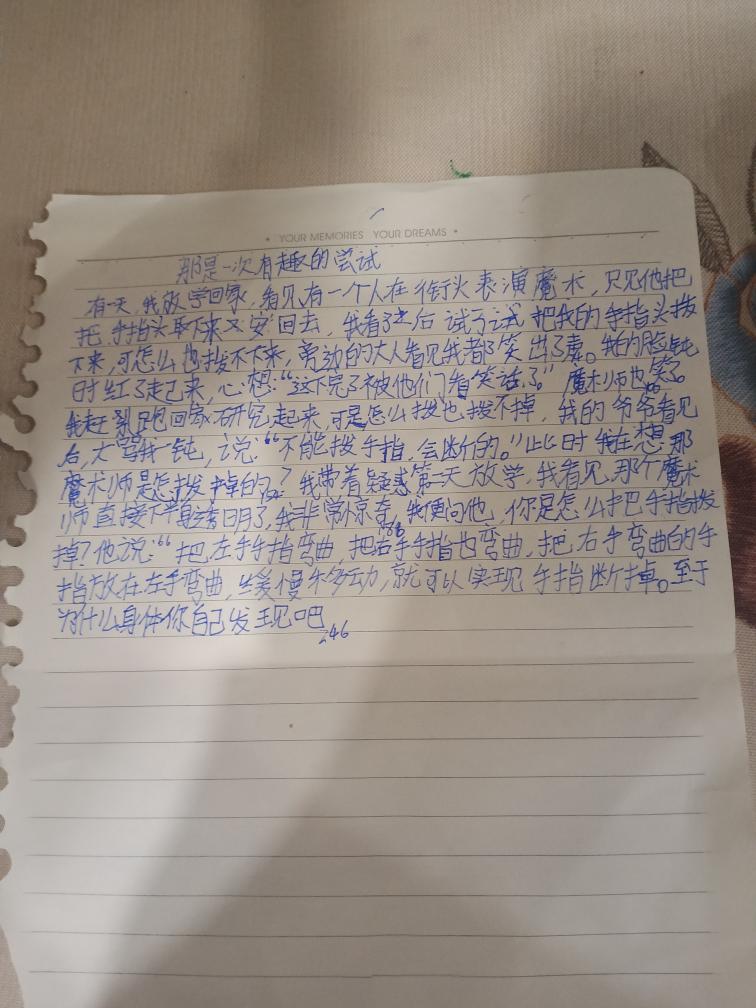 YOUR MEMORIES YOUR DREAMS
那是一次有趣的尝试
有一天,我放学回家,看见有一个人在街头表演魔术,只见他把
把手指头取下来又安回去,我看了之后试了试把我的手指头拨
下来,可怎么也拨不下来,旁边的大人看见我都笑出了声。我的脸钝
时红了起来,心想:“这下完了被他们看笑话了。”魔术师也笑了。
我赶裂跑回家研究起来,可是怎么拨也拨不掉,我的爷爷看见
后,大骂我一钝,说:“不能拨手指,会断的。”此时我在想那
魔术师是怎拨掉的?我带着疑惑第二天放学,我看见那个魔术
师直接下半身透明了,我非常惊奇,我便问他,你是怎么把手指拨
掉?他说:“把左手手指弯曲,把右手手指也弯曲,把右手弯曲的手
指放在左手弯曲,缓慢移动,就可以实现手指断掉。至于
为什么身体你自己发现吧
246